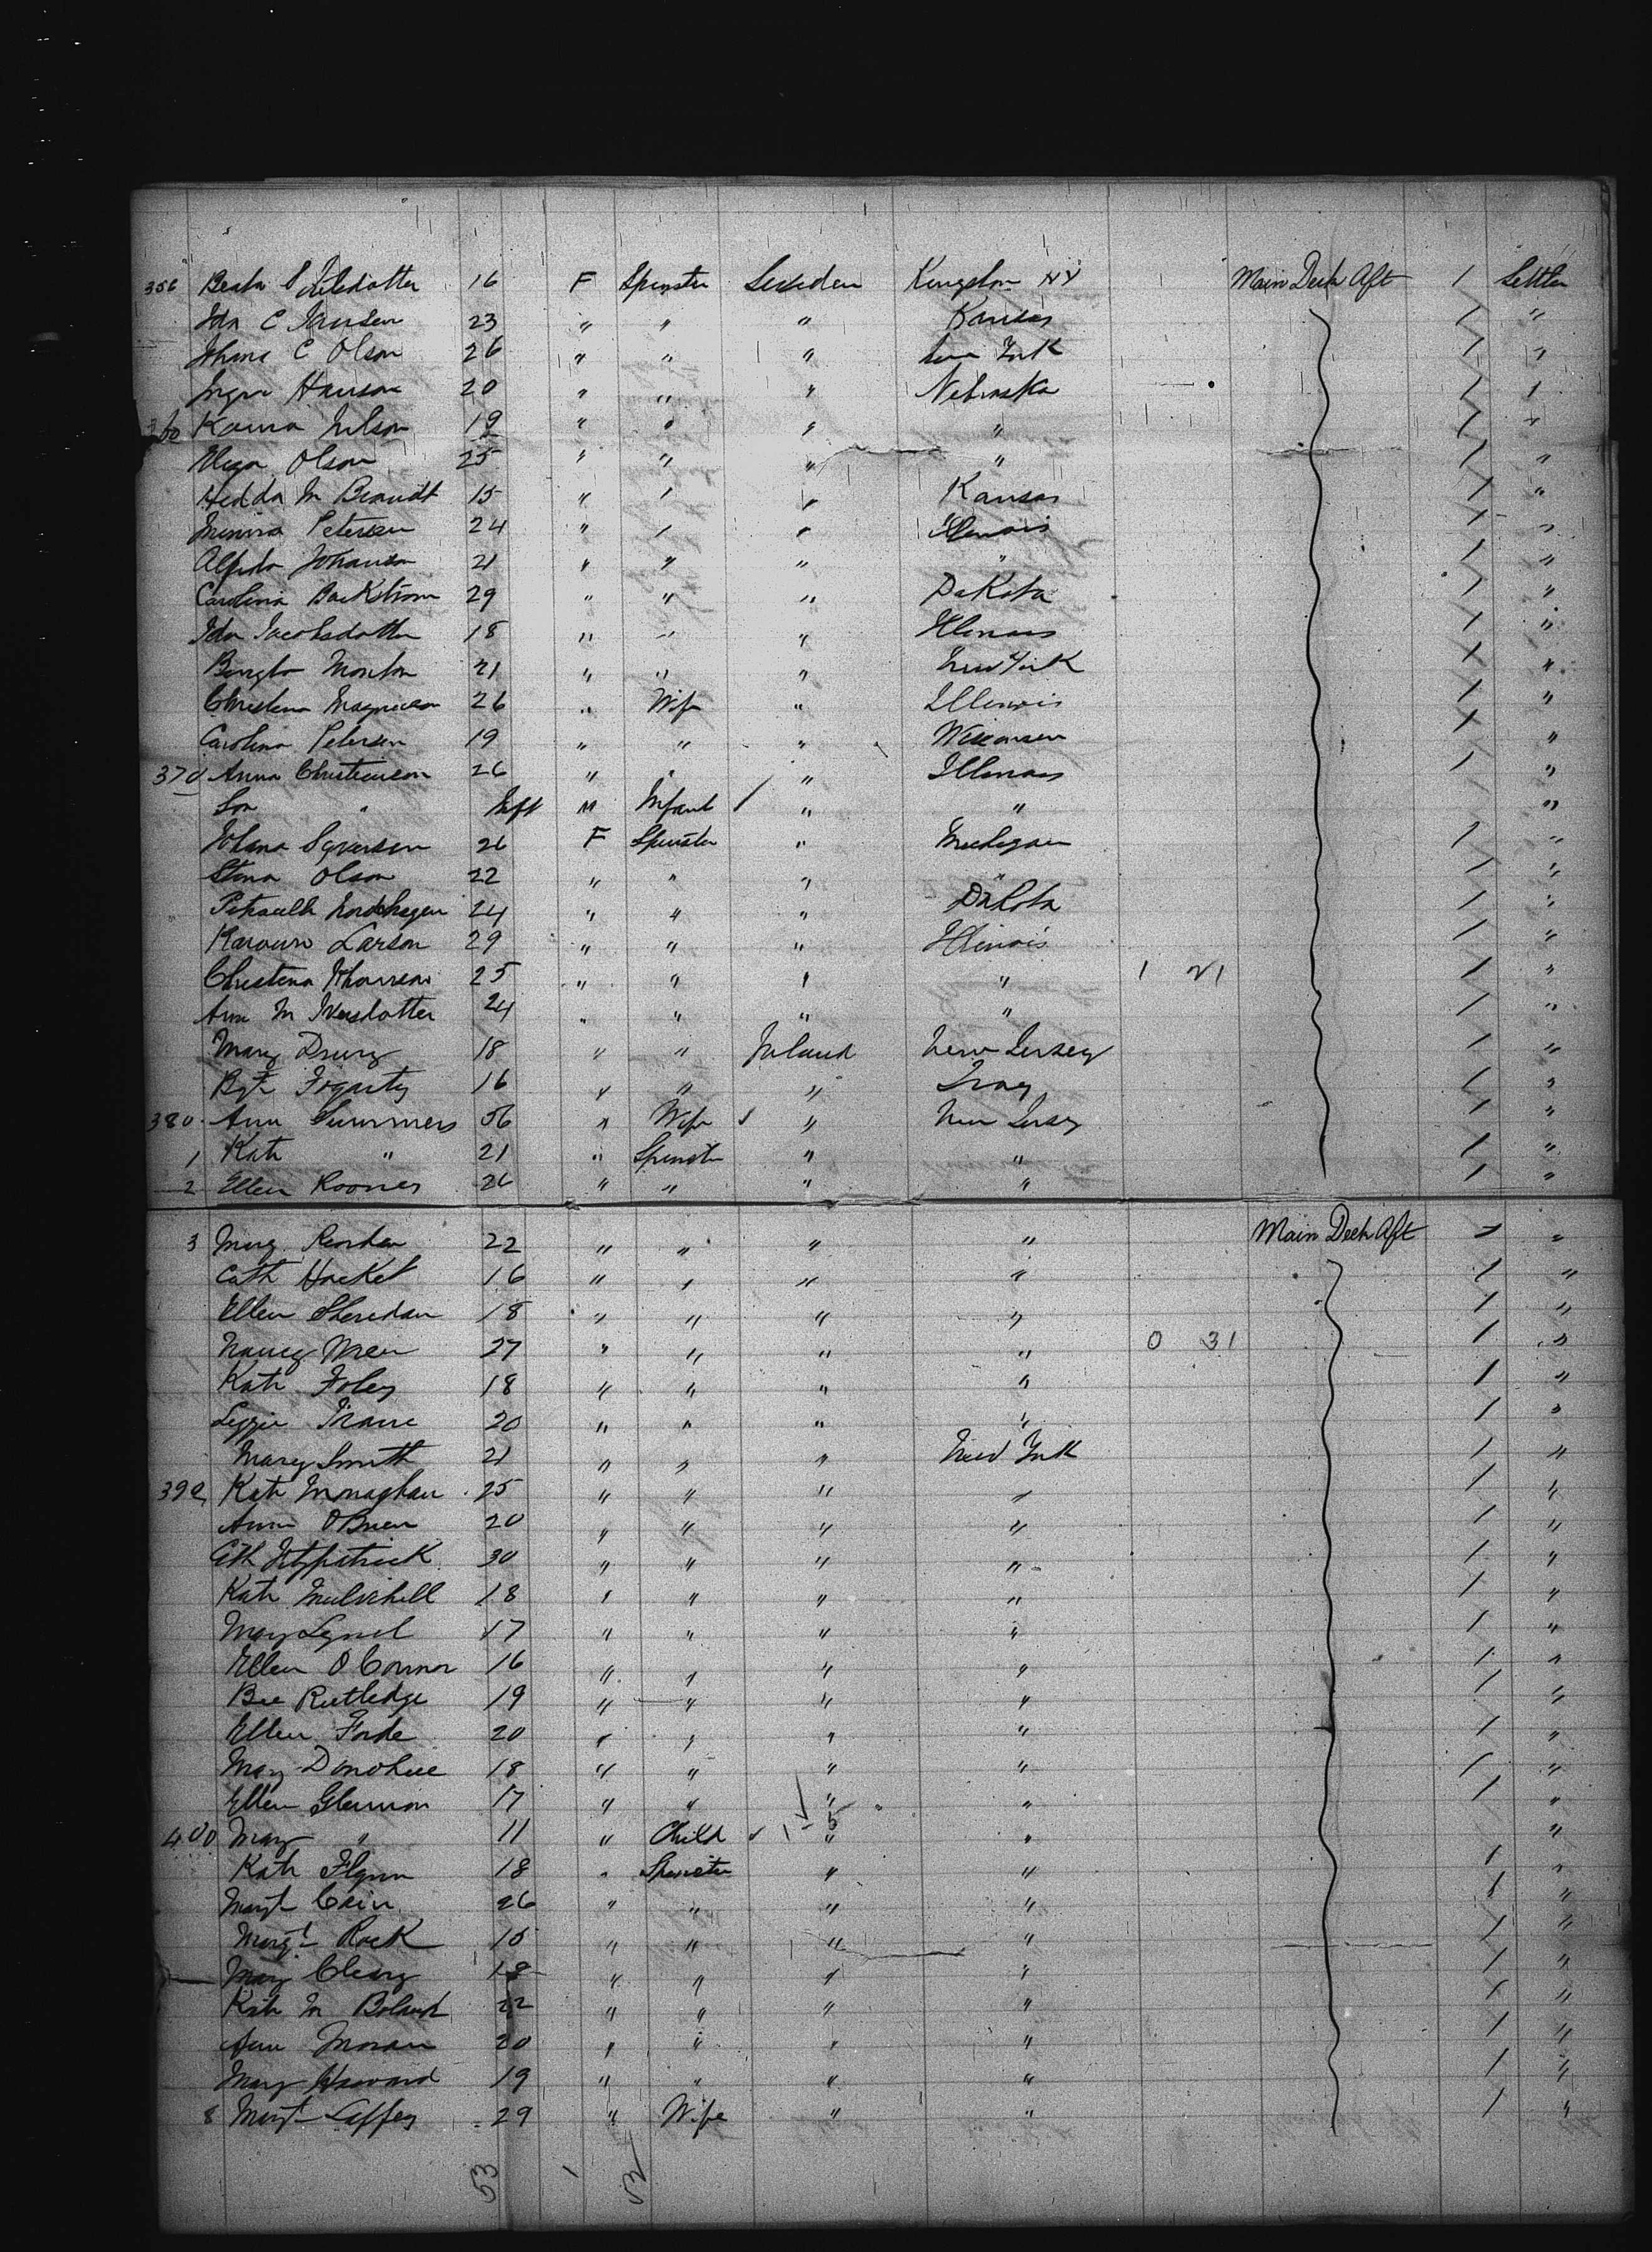 356 Beata S Nilsdotter 16 F Spinster Sweden Kingston NY Main Deck Aft 1 Settler
Ida C Jansen 23 " " " Kansas 1 "
Johana C Olson 26 " " " New York 1 "
Ingra Hanson 20 " " " Nebraska 1 "
360 Karna Nilson 19 " " " " 1 "
Olson 25 " " " " 1 "
Hedda M Brandt 15 " " " Kansas 1 "
Petersen 24 " " " Illinois 1 "
Alfrida Johanson 21 " " " " 1 "
Carolina Backstrom 29 " " " Dakota 1 "
Ida Jacobsdotter 18 " " " Illinois 1 "
Bengta 21 " " " New York 1 "
Christina Magnuson 26 " Wife " Illinois 1 "
Carolina Petersen 19 " " " Wisconsin 1 "
370 Anna Christianson 26 " " " Illinois 1 "
Son " Inft M Infant / " " "
26 F Spinster " Michigan 1 "
Stina Olson 22 " " " " 1 "
Nordhagen 24 " " " Dakota 1 "
Larson 29 " " " Illinois 1 "
Christina 25 " " " " 1 21 1 "
Ann M Iversdotter 24 " " " " 1 "
Mary Drury 18 " " Ireland New Jersey 1 "
Bgt Fogarty 16 " " " Troy 1 "
380 Ann Summers 56 " Wife " New Jersey 1 "
1 Kate " 21 " Spinster " " 1 "
2 Ellen Rooney 26 " " " " 1 "
3 Marg Riordan 22 " " " " Main Deck Aft 1 "
Cath Hacket 16 " " " " 1 "
Ellen Sheridan 18 " " " " 1 "
Nancy Wren 27 " " " " 0 31 1 "
Kate Foley 18 " " " " 1 "
Lizzie 20 " " " " 1 "
Mary Smith 21 " " " New York 1 "
390 Kate Monaghan 25 " " " " 1 "
Ann OBrien 20 " " " " 1 "
Cth Fitzpatrick 30 " " " " 1 "
Kate Mulvihill 18 " " " " 1 "
Mary Lynch 17 " " " " 1 "
Ellen O Connor 16 " " " " 1 "
Bee Rutledge 19 " " " " 1 "
Ellen Forde 20 " " " " 1 "
Mary Donohue 18 " " " " 1 "
Ellen Glennon 17 " " " " 1 "
400 Mary " 11 " Child 1 - 5 " " "
Kate Flynn 18 " Spinster " " 1 "
Margt Cain 26 " " " " 1 "
Margt Rock 15 " " " " 1 "
Mary Cleary 18 " " " " 1 "
Kate M Boland 22 " " " " 1 "
Ann Moran 20 " " " " 1 "
Mary Howard 19 " " " " 1 "
8 Margt Laffey 29 " Wife " " 1 "
53 1 52